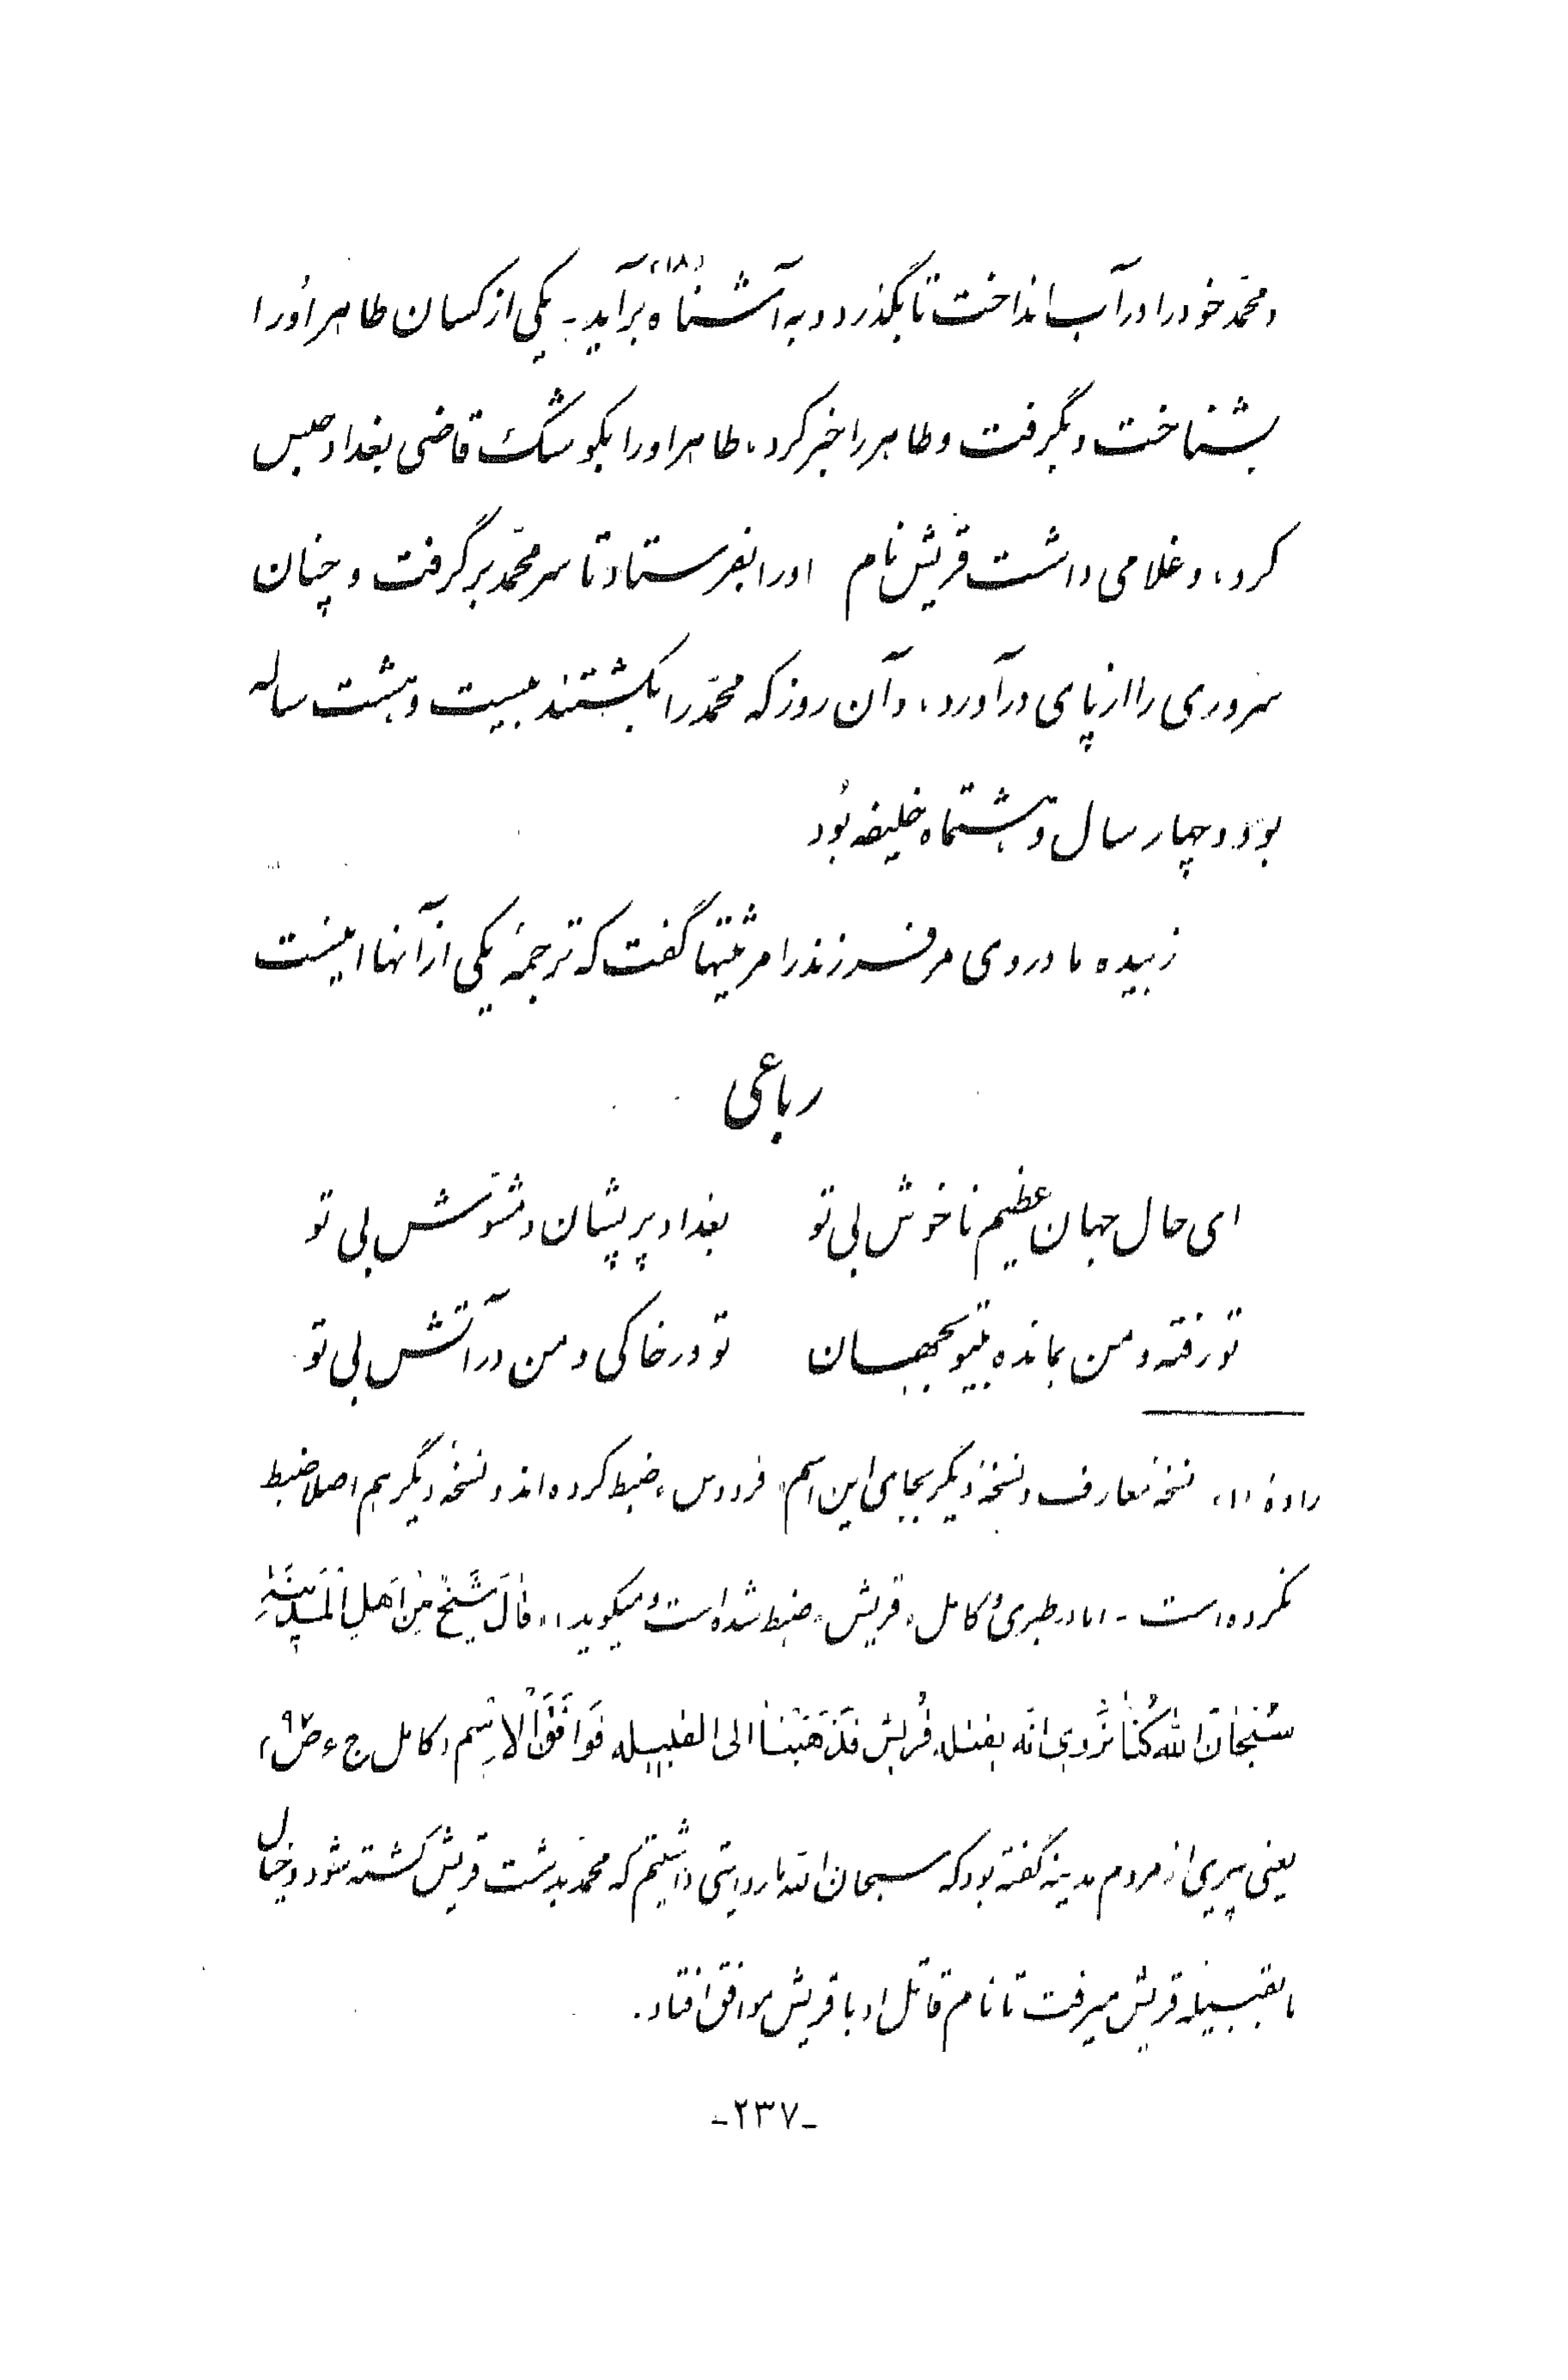 و محمّد خود را در آب انداخت تا بگذرد و به آشناه (۱۸) برآید ـ یکی از کسان طاهر اورا
بشناخت و بگرفت و طاهر را خبر کرد، طاهر اورا بکوشک قاضی بغداد حبس
کرد، و غلامی داشت قریش نام اورا بفرستاد تا سر محمّد برگرفت و چنان
سروری را از پای درآورد، و آن روز که محمّد را بکشتند بیست و هشت ساله
بود و چهار سال و هشتماه خلیفه بُود
زبیده مادر وی مر فرزند را مرثیتها گفت که ترجمهٔ یکی از آنها اینست
رباعی
ای حال جهان عظیم ناخوش بی تو بغداد پریشان و مشوّش بی تو
تو رفته و من بمانده بیتو بجهان تو در خاکی و من در آتش بی تو
(۱) نسخهٔ معارف و نسخهٔ دیگر بجای این اسم «فردوس» ضبط کرده‌اند و نسخهٔ دیگر هم اصلا ضبط
نکرده است ـ اما در طبری و کامل «قریش» ضبط شده است و میگوید: «قالَ شَیخٌ مِن اَهلِ المَدینَةِ
سُبحانَ اللهِ کُنّا نَروی انّه یقتله قُریش فَذَهَبنا الی القبیله فَوافَقَ الاِسم» (کامل ج ۶ ص ۹۷)
یعنی پیری از مردم مدینه گفته بود که سبحان الله ما روایتی داشتیم که محمّد بدست قریش کشته شود و خیال
ما بقبیله قریش میرفت تا نام قاتل او با قریش موافق افتاد.
-۲۳۷-